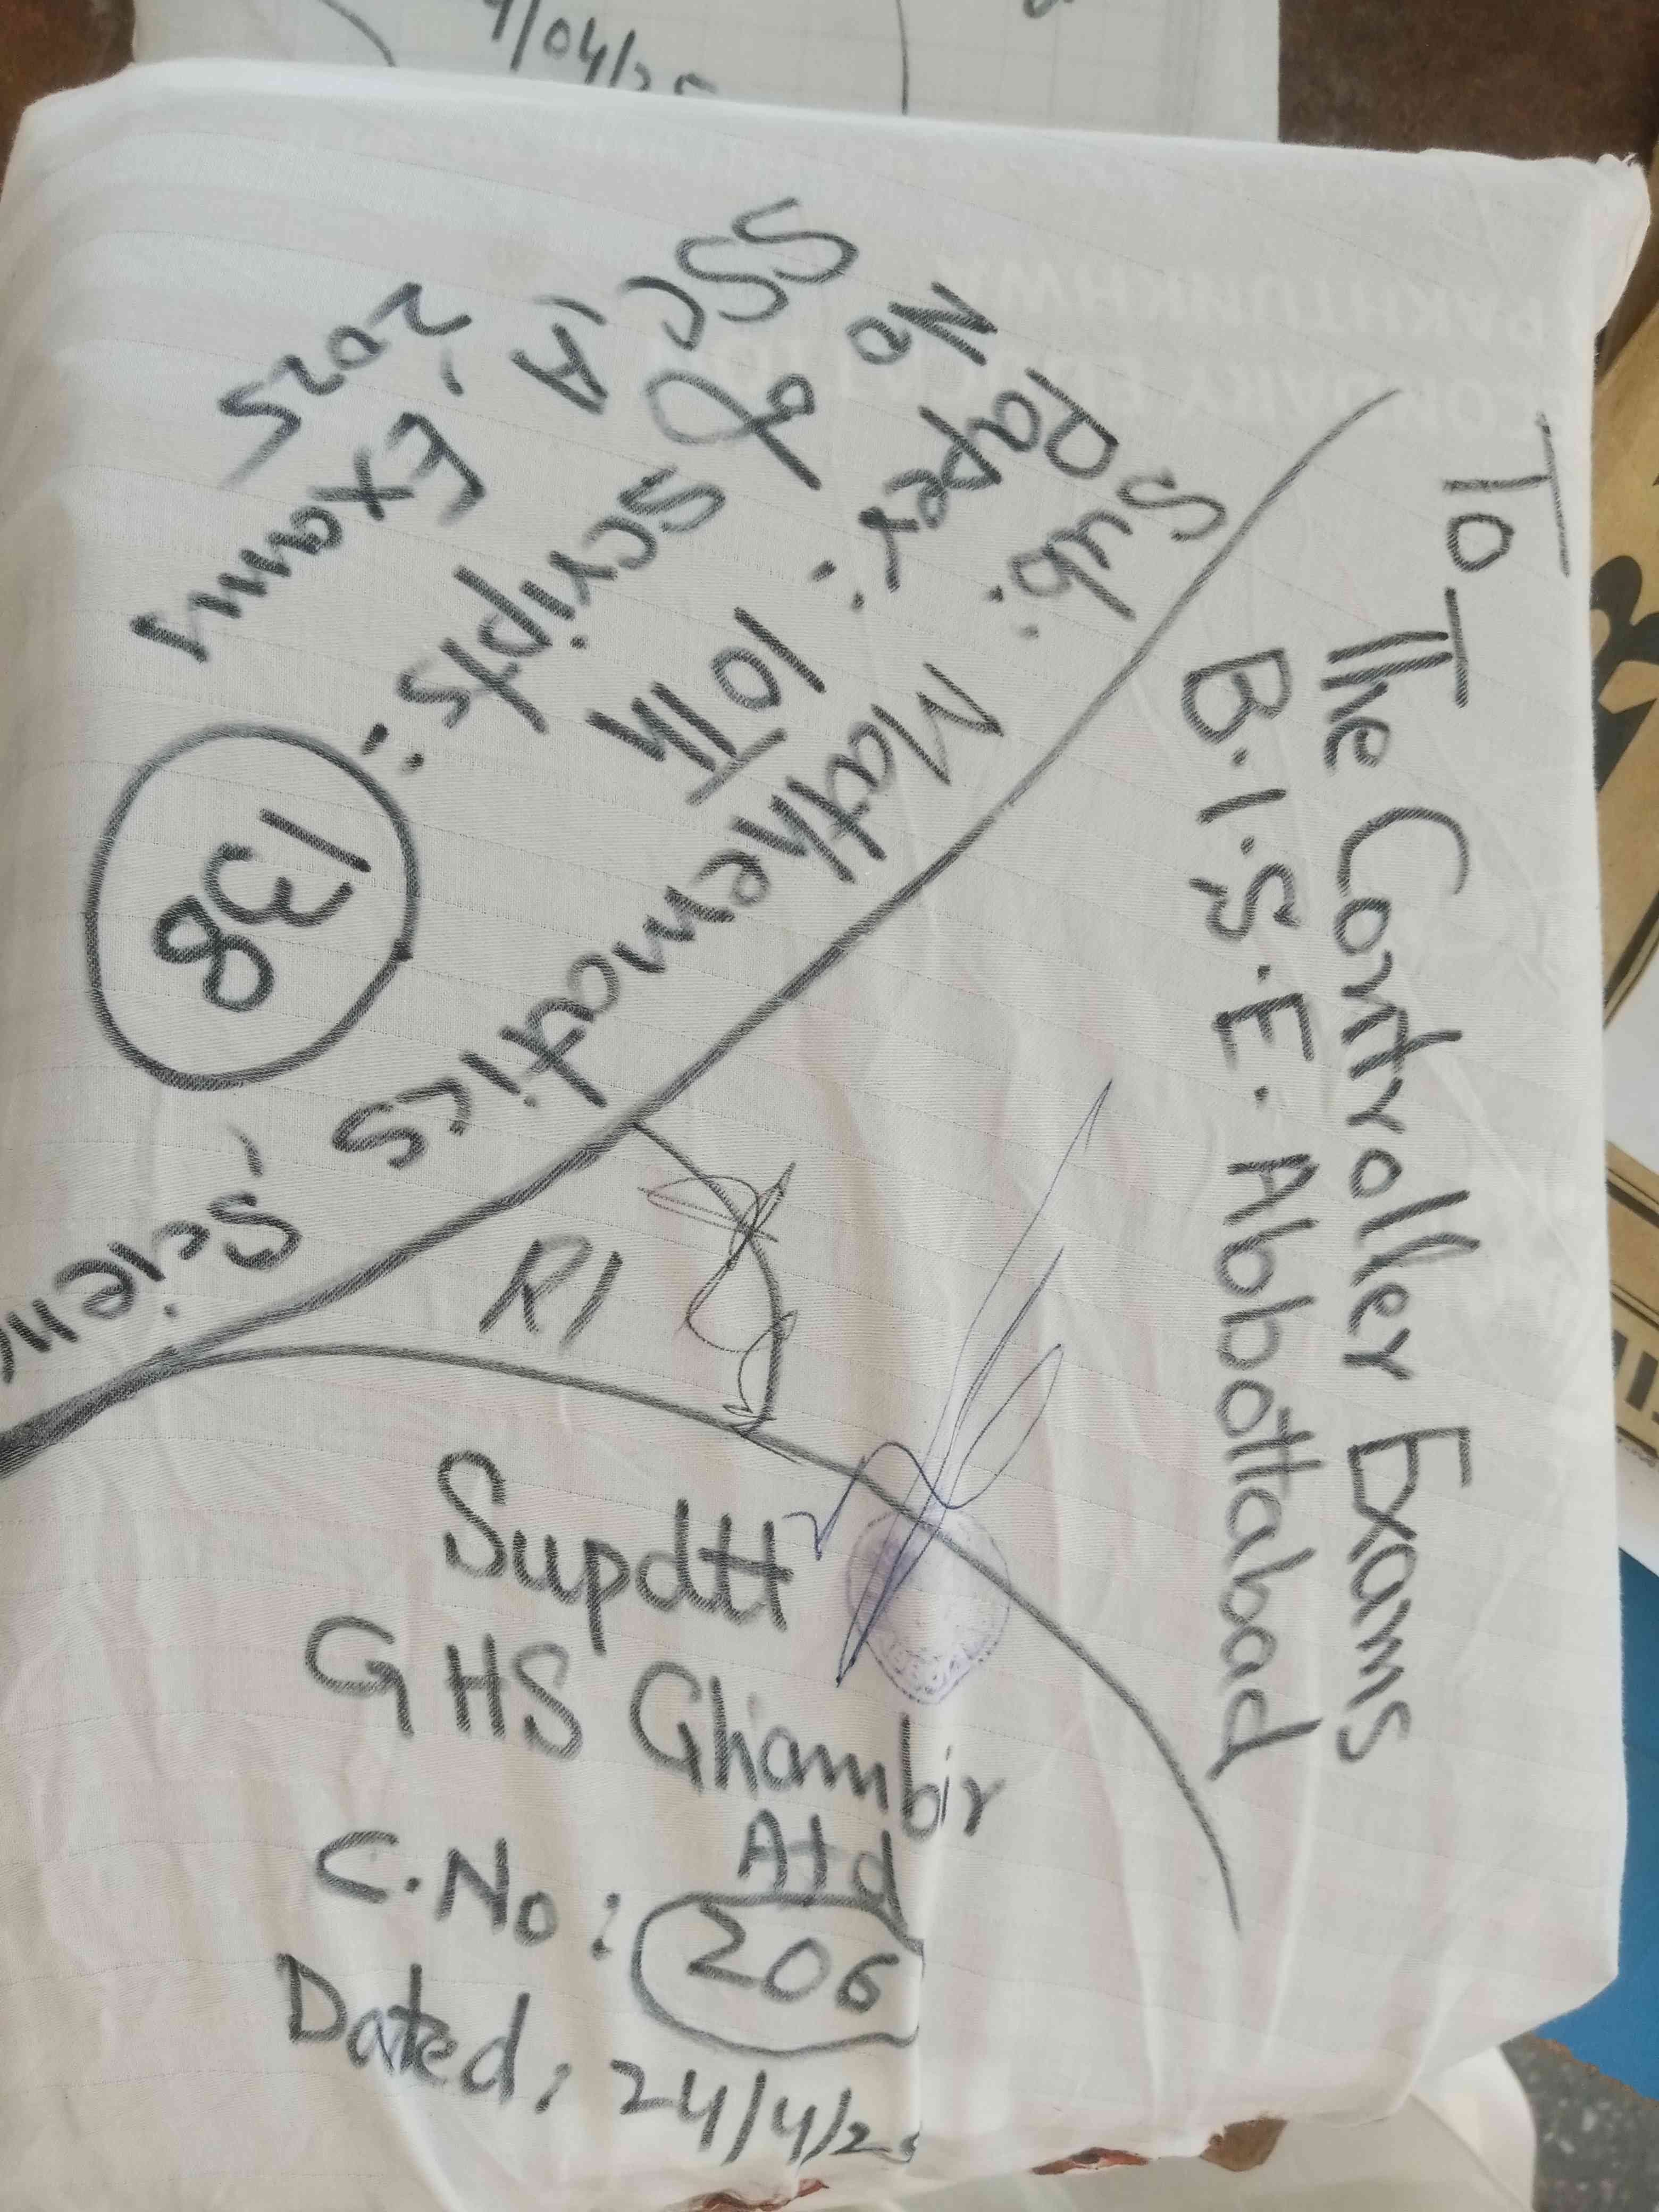 To
The Controller Exams
B.I.S.E. Abbottabad
Sub: Mathematics
Paper: 10Th
No of Scripts: 138
SSC (A) Exam, 2025
R1
Supdtt
GHS Ghambir
Atd
C.No: 206
Dated: 24/4/25